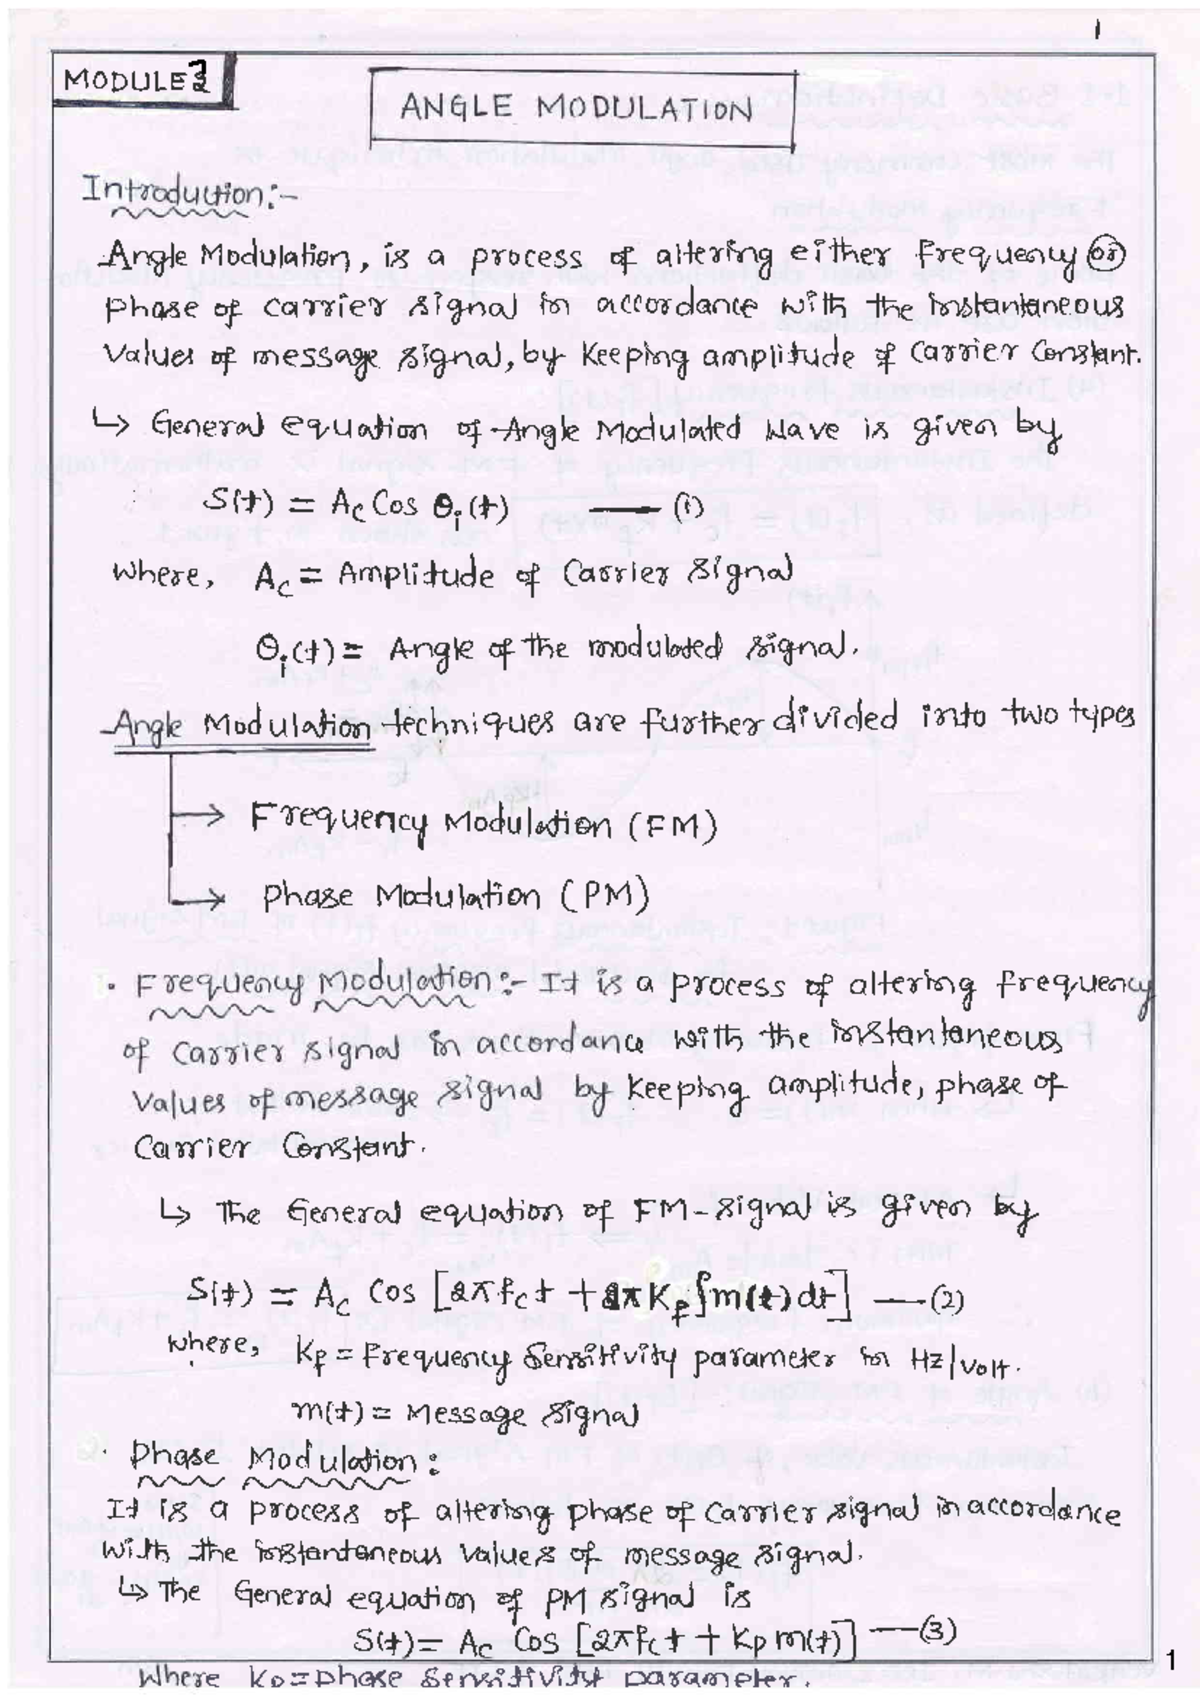 1
MODULE 3
ANGLE MODULATION
Introduction:-
Angle Modulation, is a process of altering either frequency (or)
phase of carrier signal in accordance with the instantaneous
values of message signal, by keeping amplitude of carrier constant.
↳ General equation of Angle Modulated wave is given by
S(t) = Ac Cos θi(t) —— (1)
where, Ac = Amplitude of Carrier signal
θi(t) = Angle of the modulated signal.
Angle Modulation techniques are further divided into two types
→ Frequency Modulation (FM)
→ Phase Modulation (PM)
· Frequency Modulation:- It is a process of altering frequency
of carrier signal in accordance with the instantaneous
values of message signal by keeping amplitude, phase of
carrier constant.
↳ The General equation of FM-signal is given by
S(t) = Ac Cos [2πfct + 2πKf ∫m(t)dt] ——(2)
where, Kf = frequency sensitivity parameter in Hz/volt.
m(t) = Message signal
· Phase Modulation:
It is a process of altering phase of carrier signal in accordance
with the instantaneous values of message signal.
↳ The General equation of PM signal is
S(t) = Ac Cos [2πfct + Kp m(t)] ——(3)
Where Kp = phase sensitivity parameter.
1